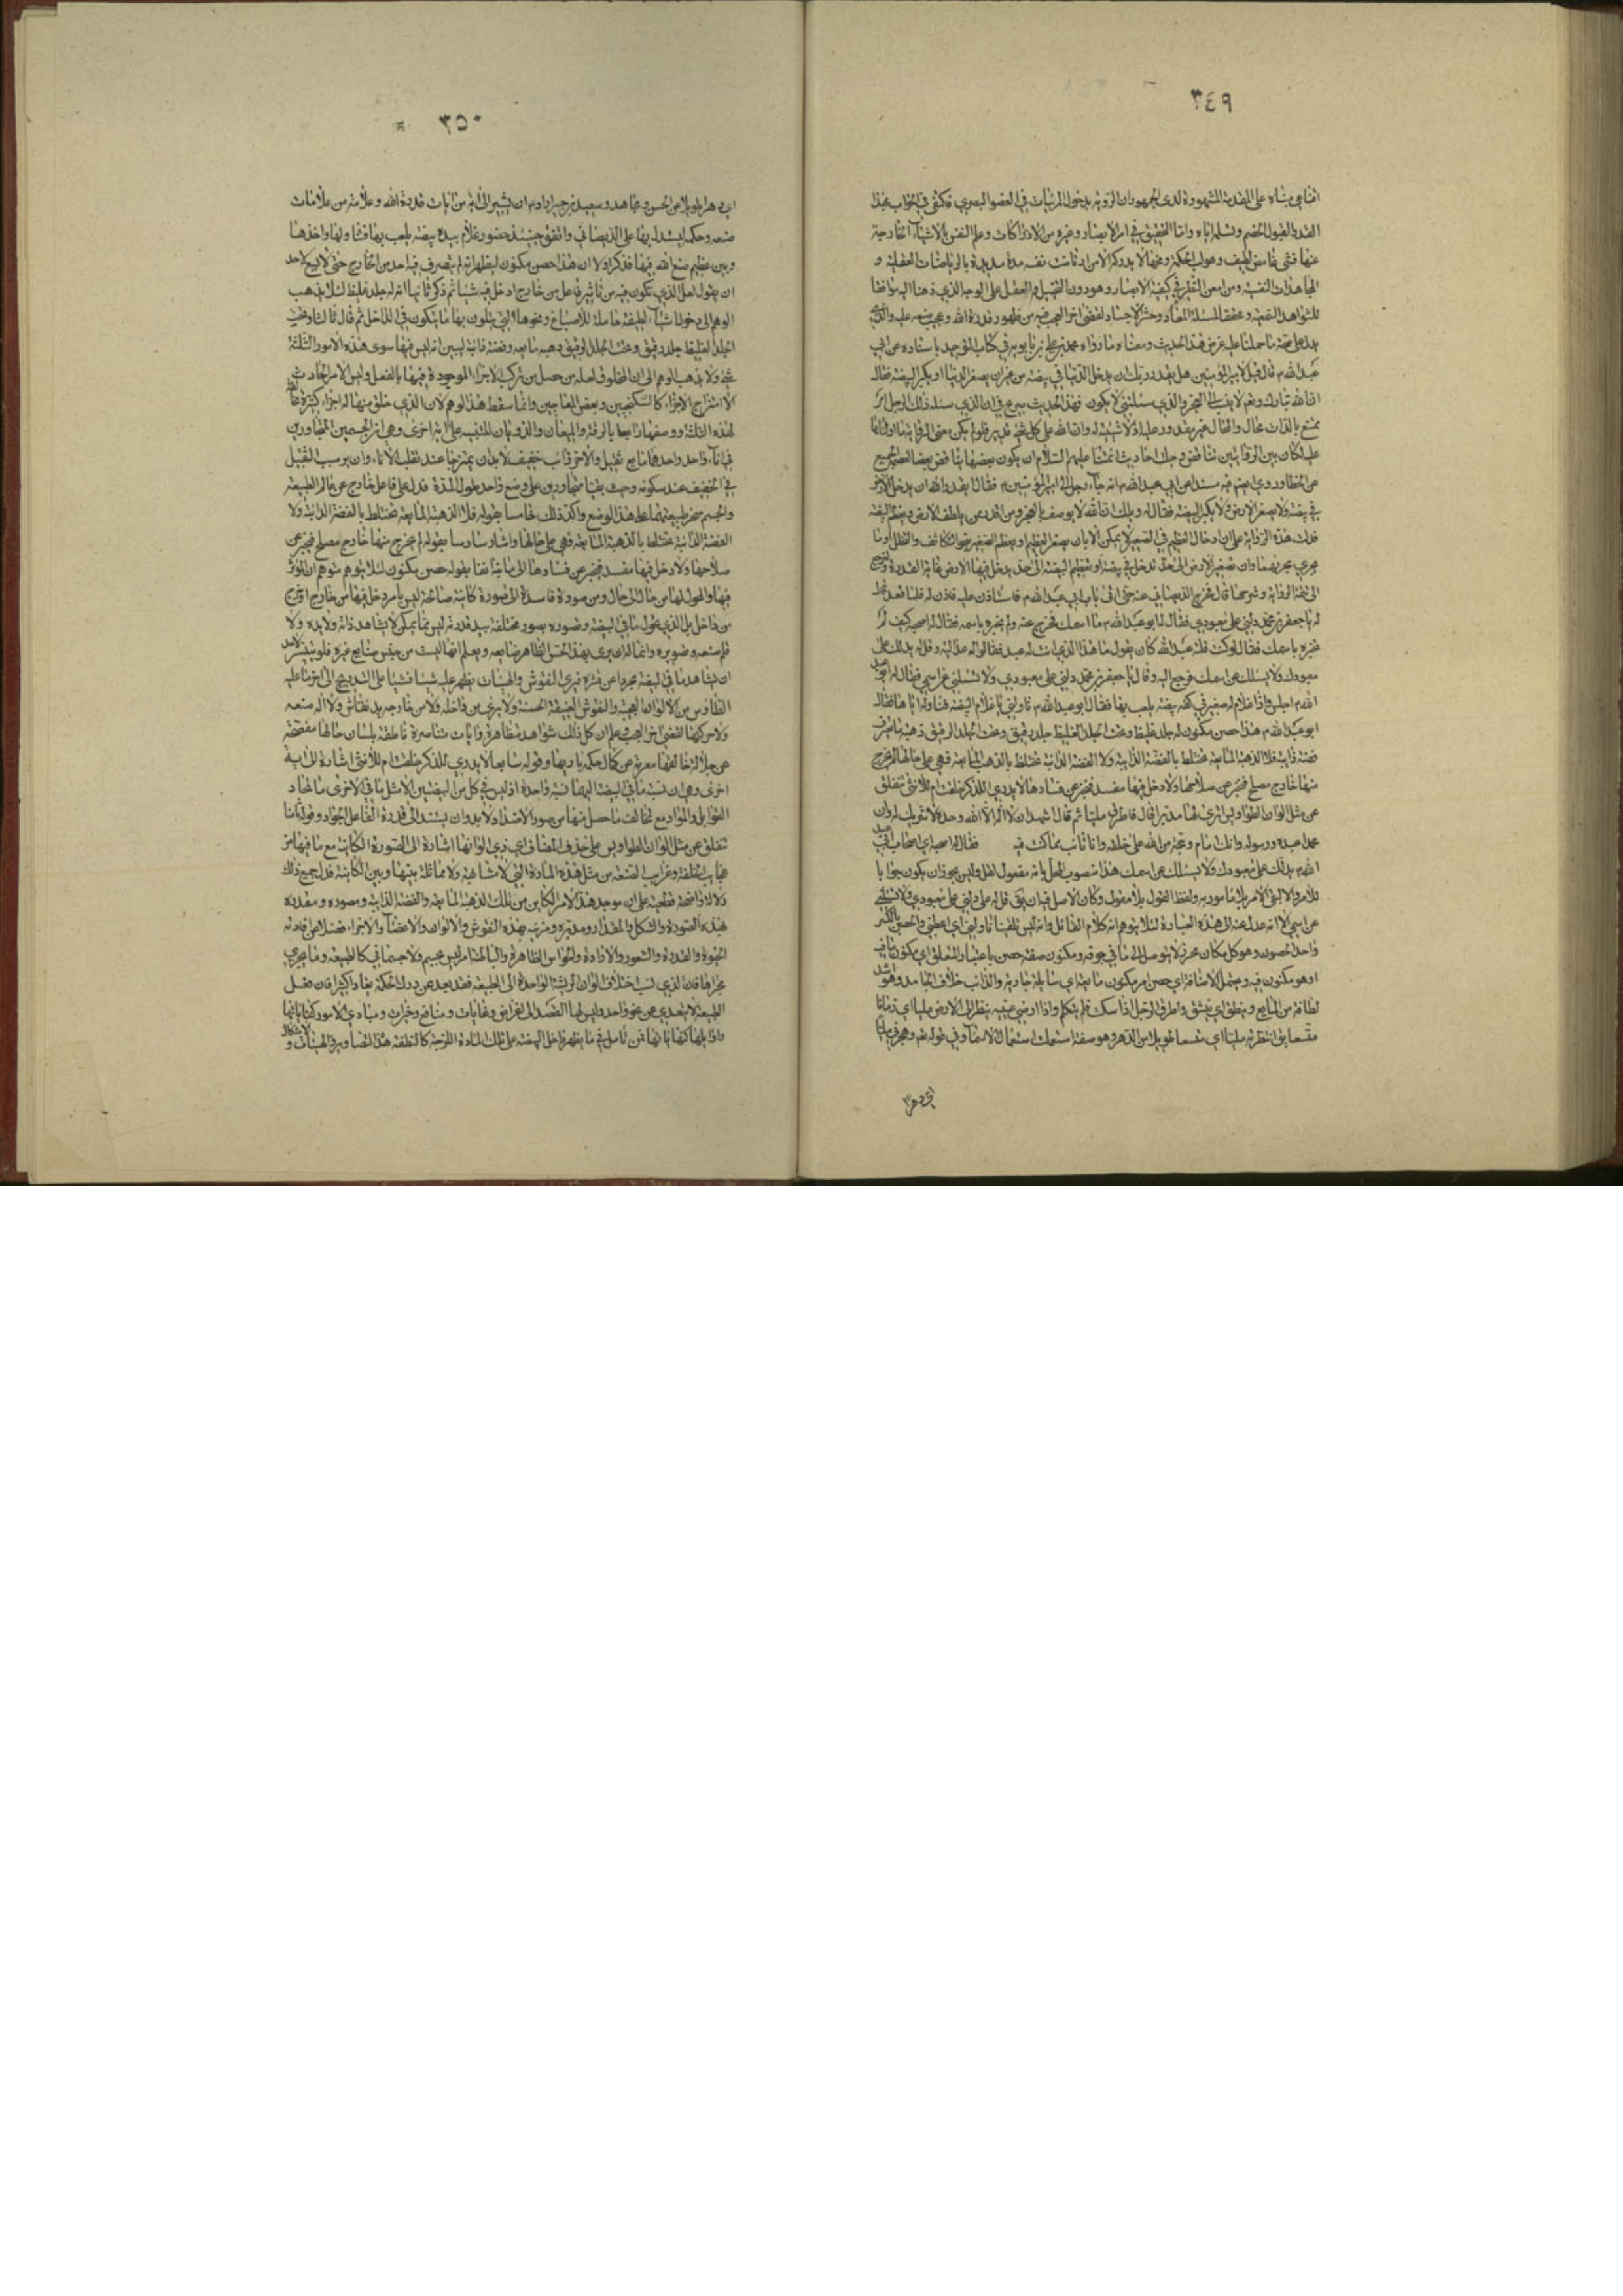 ٣٤٩
اقناعي مبناه على المقدمة المشهورة لدى الجمهور ان الروية بدخول المرئيات في العضو البصري فاكتفى في الجواب بهذا
القدر لقبول الخصم وتسليمه اياه واما التحقيق في امر الابصار وغيره من الادراكات وعلم النفس بالاشياء الخارجة
عنها فشي غامض لطيف وهو لب الحكمة ومخها لا يدركه الا من ادمنت نفسه مدة مديدة بالرياضات العقلية و
المجاهدات النفسية ومن امعن النظر في كيفية الابصار وهو دون التخيل والتعقل على الوجه الذي ذهبنا اليه موافقا
للشواهد السمعية ومحققا لمسئلة المعاد وحشر الاجساد لقضى اخر العجب فيه من ظهور قدرة الله وعجيب صنعه عليه والذي
يدل على صحة ما حملنا عليه غرض هذا الحديث ومعناه ما رواه محمد بن علي بن بابويه في كتاب التوحيد باسناده عن ابي
عبد الله ع قال قيل لامير المؤمنين هل يقدر ربك ان يدخل الدنيا في بيضة من غير ان يصغر الدنيا او يكبر البيضة فقال
ان الله تبارك وتعالى لا ينسب الى العجز والذي سئلتني لا يكون فهذا الحديث صريح في ان الذي سئله ذلك الرجل امر
ممتنع بالذات محال والمحال غير مقدور عليه اذ لا شيئية له وان الله على كل شيء قدير فلو لم يكن معنى الرواية ما اولناها
عليه لكان بين الروايتين تناقض وجلت احاديث ائمتنا عليهم السلام ان يكون بعضها يناقض بعضا لعصمة الجميع
عن الخطا وروي ايضا فيه مسندا عن ابي عبد الله ع انه جاء رجل الى امير المؤمنين ع فقال ايقدر الله ان يدخل الارض
في بيضة ولا يصغر الارض ولا يكبر البيضة فقال له ويلك ان الله لا يوصف بالعجز ومن اقدر ممن يلطف الارض ويعظم البيضة
فدلت هذه الرواية على ان ادخال العظيم في الصغير لا يمكن الا بان يصغر العظيم او يعظم الصغير بنحو التكاثف والتخلخل او ما
يجري مجريهما وان تصغير الارض الى حد تدخل في بيضة او تعظيم البيضة الى حد يدخل فيها الارض غاية القدرة ولنرجع
الى تتمة الرواية وشرحها قال فخرج الديصاني عنه حتى اتى باب ابي عبد الله ع فاستاذن عليه فاذن له فلما قعد قال
له يا جعفر بن محمد دلني على معبودي فقال له ابو عبد الله ع ما اسمك فخرج عنه ولم يخبره باسمه فقال له اصحابه كيف لم
تخبره باسمك فقال لو كنت قلت عبد الله كان يقول من هذا الذي انت له عبد فقالوا له عد اليه وقل له يدلك على
معبودك ولا يسئلك عن اسمك فرجع اليه وقال يا جعفر بن محمد دلني على معبودي ولا تسئلني عن اسمي فقال له ابو عبد
الله ع اجلس واذا غلام له صغير في كفه بيضة يلعب بها فقال ابو عبد الله ع ناولني يا غلام البيضة فناوله اياها فقال
ابو عبد الله ع هذا حصن مكنون له جلد غليظ وتحت الجلد الغليظ جلد رقيق وتحت الجلد الرقيق ذهبة مايعة
فضة ذائبة فلا الذهبة المايعة تختلط بالفضة الذائبة ولا الفضة الذائبة تختلط بالذهبة المايعة فهي على حالها لم يخرج
منها خارج مصلح فيخبر عن صلاحها ولا دخل فيها مفسد فيخبر عن فسادها لا يدرى اللذكر خلقت ام للانثى تتفلق
عن مثل الوان الطواويس اترى لها مدبرا قال فاطرق مليا ثم قال اشهد ان لا اله الا الله وحده لا شريك له وان
محمدا عبده ورسوله وانك امام وحجة من الله على خلقه وانا تائب مما كنت فيه فقال له اصحابه اي اصحاب ابي عبد
الله ع يدلك على معبودك ولا يسئلك عن اسمك هذا منصوب المحل بانه مفعول لقل وليس يجوز ان يكون جوابا
للامر والا لبقي الامر بلا مامور به ولفظ القول بلا مقول وكان الاصل فيه ان يقق قل له على دلني على معبودي ولا تسئلني
عن اسمي الا انه عدل عنه الى هذه العبارة لئلا يتوهم انه كلام القائل وانه ليس تلقينا ناولني اي اعطني والحصن بالكسر
واحد الحصون وهو كل مكان محرز لا يتوصل الى ما في جوفه ومكنون صفة حصن باعتبار المتعلق اي مكنون ما فيه
او هو مكنون فيه ويحتمل الاضافة اي حصن امر مكنون مايعة اي سايلة جارية والذائب خلاف الجامد وهو اشد
لطافة من المايع وينفلق اي ينشق واطرق الرجل اذا سكت فلم يتكلم واذا ارخى عينيه ينظر الى الارض مليا اي زمانا
متسعا يق انتظرته مليا اي متسعا طويلا من الدهر وهو صفة استعملت استعمال الاسماء وفي قوله تعالى واهجرني مليا
اي دهرا
٣٥٠
اي دهرا طويلا من الحسن ومجاهد وسعيد بن جبير اراد ع ان يشير الى اية من ايات قدرة الله وعلامة من علامات
صنعه وحكمه ليستدل بها على الديصاني واتفق حينئذ حضور غلام بيده بيضة يلعب بها فتناولها واخذها
وبين عظيم صنع الله فيها فذكر اولا ان هذا حصن مكنون ليظهر انه لم يتصرف فيه احد من الخارج حتى لا يسع لاحد
ان يقول لعل الذي تكون فيه من تاثير فاعل من خارج ادخل فيه شيئا ثم ذكر ثانيا انه له جلد غليظ لئلا يذهب
الوهم الى دخول اشياء لطيفة حاملة للاصباغ ونحوها التي يتلون بها ما يتكون في الداخل ثم قال ثالثا وتحت
الجلد الغليظ جلد رقيق وتحت الجلد الرقيق ذهبة مايعة وفضة ذائبة ليبين انه ليس فيها سوى هذه الامور الثلثة
شيء ولا يذهب الوهم الى ان المخلوق لعله من حصل من تركيب الاجزاء الموجودة فيها بالفعل وليس الامر الحادث
الا امتزاج الاجزاء كالسكنجبين وبعض المعاجين وانما سقط هذا الوهم لان الذي خلق منها له اجزاء كثيرة
لهذه الثلثة ووصفها رابعا بالرقة والميعان والذوبان للتنبيه على اية اخرى وهي ان الجسمين المتجاورين
في اناء واحد واحدهما مايع ثقيل والاخر ذائب خفيف لا بد ان يمتزجا عند تقلب الاناء وان يرسب الثقيل
في الخفيف عند سكونه وحيث بقيتا متجاورين على وضع واحد طول المدة فدل على فاعل خارج عن عالم الطبيعة
والجسم سخر طبيعتهما على هذا الوضع واكد ذلك خامسا بقوله فلا الذهبة المايعة تختلط بالفضة الذائبة ولا
الفضة الذائبة تختلط بالذهبة المايعة فهي على حالها واشار سادسا بقوله لم يخرج منها خارج مصلح فيخبر عن
صلاحها ولا دخل فيها مفسد فيخبر عن فسادها الى ما بيناه انفا بقوله حصن مكنون لئلا يتوهم متوهم ان المؤثر
فيها والمحول لها من حال الى حال ومن صورة فاسدة الى صورة كاينة صالحة ليس بامر دخل فيها من خارج او خرج
من داخل بل الذي يحول ما في البيضة وتصوره بصور مختلفة بيد قدرته ليس مما يمكن ان يشاهد ذاته ولا يده ولا
قلم صنعه وتصويره وانما له ان يرى بهذا الحس الظاهر صنايعه ويعلم انها ليست من جنس صنايع غيره فلو تيسر لاحد
ان يشاهد ما في البيضة مجردا عن قشره فيرى النقوش والهيات يظهر عليه شيئا فشيئا على التدريج الى اخر ما عليه
الطاوس من الالوان العجيبة والنقوش الانيقة الحسنة ولا يرى من داخله ولا من خارجه يد نقاش ولا الة صنعه
ولا حركتها لقضى اخر العجب فيعلم ان كل ذلك شواهد متظاهرة وايات متناصرة ناطقة بلسان حالها مفصحة
عن جلالة خالقها معربة عن كمال حكمة باريها وقوله سابعا لا يدرى للذكر خلقت ام للانثى اشارة الى اية
اخرى وهي ان نسبة ما في البيضة اليهما نسبة واحدة اذ ليس في كل من البيضتين الا مثل ما في الاخرى فاتحاد
القوابل والمواد مع تخالف ما حصل منها من صور الاضداد لا بد وان يستند الى قدرة الفاعل الجواد وقوله ثامنا
تتفلق عن مثل الوان الطواويس على حذف المضاف اي ذي الوانها اشارة الى الصورة الكاينة مع ما فيها من
عجايب الخلقة وغرايب الصنعة من مثل هذه المادة التي لا مشابهة ولا مماثلة بينها وبين الكاينة فدل جميع ذلك
دلالة واضحة قطعية على ان موجد هذا الامر الكاين من تلك الذهبة المايعة والفضة الذايبة ومصوره ومقدره
بهذه الصورة والشكل والمقدار ومدبره ومزينه بهذه النقوش والالوان والاعضاء والاجزاء فضلا عن افادته
الحيوة والقدرة والشعور والارادة والحواس الظاهرة والباطنة امر ليس بجسم ولا جسماني كالطبيعة وما يجري
مجراها فان الذي نسب اختلاف الوان الريشة الواحدة الى الطبيعة فقد بعد عن درك الحكمة بعدا كثيرا فان فعل
الطبيعة لا يتعدى عن نحو واحد وليس لها القصد الى اغراض وغايات ومنافع وخيرات ومبادي الامور كغاياتها
واوايلها كنهاياتها فمن تامل في ما يظهر داخل البيضة على تلك المادة اللزجة كالنطفة من التصاوير والهيات والاشكال و